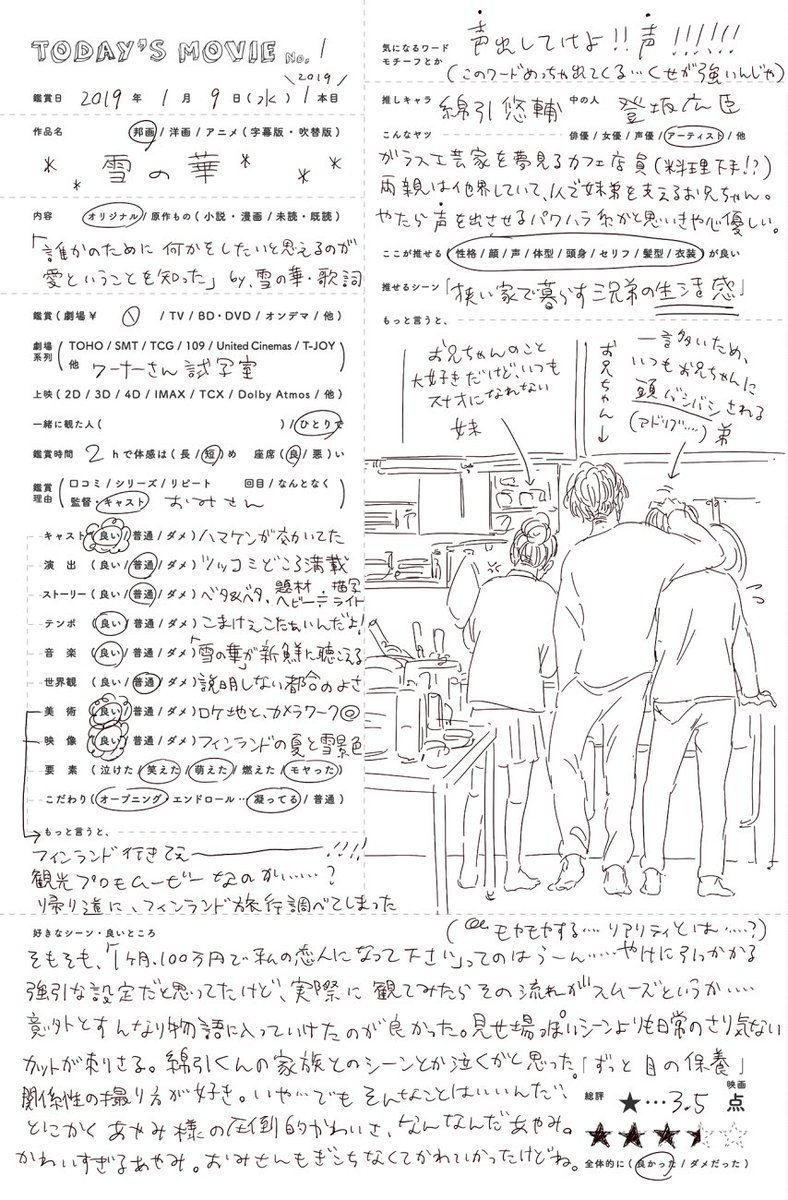 TODAY'S MOVIE No. 1
\2019/
鑑賞日 2019年 1月 9日(水) 1本目
作品名 邦画/洋画/アニメ(字幕版・吹替版)
雪の華
内容 オリジナル/原作もの(小説・漫画/未読・既読)
「誰かのために何かをしたいと思えるのが
愛ということを知った」by.雪の華・歌詞
鑑賞(劇場¥ /TV/BD・DVD/オンデマ/他)
劇場系列(TOHO/SMT/TCG/109/United Cinemas/T-JOY
他 ワーナーさん試写室)
上映(2D/3D/4D/IMAX/TCX/Dolby Atmos/他)
一緒に観た人( )/ひとりで
鑑賞時間 2hで体感は(長/短)め 座席(良/悪)い
鑑賞理由(口コミ/シリーズ/リピート 回目/なんとなく
監督・キャスト おみさん)
キャスト(良い/普通/ダメ)ハマケンが効いてた
演出(良い/普通/ダメ)ツッコミどころ満載
ストーリー(良い/普通/ダメ)ベタ&ベタ、題材ヘビー≒描写ライト
テンポ(良い/普通/ダメ)こまけぇこたぁいんだよ!
音楽(良い/普通/ダメ)「雪の華」が新鮮に聴こえる
世界観(良い/普通/ダメ)説明しない都合のよさ
美術(良い/普通/ダメ)ロケ地と、カメラワーク◎
映像(良い/普通/ダメ)フィンランドの夏と雪景色
要素(泣けた/笑えた/萌えた/燃えた/モヤった)
こだわり(オープニング/エンドロール…凝ってる/普通)
もっと言うと、
フィンランド行きてえ━━!!!!
観光プロモムービーなのか……?
帰り道に、フィンランド旅行調べてしまった
気になるワード
モチーフとか
声出してけよ!!声!!!!!!
(このワードめっちゃ出てくる…くせが強いんじゃ)
推しキャラ 綿引悠輔 中の人 登坂広臣
こんなヤツ 俳優/女優/声優/アーティスト/他
ガラス工芸家を夢見るカフェ店員(料理下手!?)
両親は他界していて、1人で妹弟を支えるお兄ちゃん。
やたら声を出させるパワハラ系かと思いきや心優しい。
ここが推せる(性格/顔/声/体型/頭身/セリフ/髪型/衣装)が良い
推せるシーン「狭い家で暮らす三兄弟の生活感」
もっと言うと、
お兄ちゃんのこと
大好きだけど、いつも
スナオになれない
妹
お兄ちゃん→
一言多いため、
いつもお兄ちゃんに
頭バシバシされる
(アドリブ……)弟
好きなシーン・良いところ
(モヤモヤする…リアリティとは……?)
そもそも、「1ヶ月、100万円で私の恋人になって下さい」ってのはうーん……やけに引っかかる
強引な設定だと思ってたけど、実際に観てみたらその流れがスムーズというか……
意外とすんなり物語に入っていけたのが良かった。見せ場っぽいシーンよりも日常のさり気ない
カットが刺さる。綿引くんの家族とのシーンとか泣くかと思った。「ずっと目の保養」
関係性の撮り方が好き。いや…でもそんなことはいいんだ、
とにかくあやみ様の圧倒的かわいさ、なんなんだあやみ。
かわいすぎるあやみ。おみさんもぎこちなくてかわいかったけどね。
総評 ★…3.5 映画点
全体的に(良かった/ダメだった)